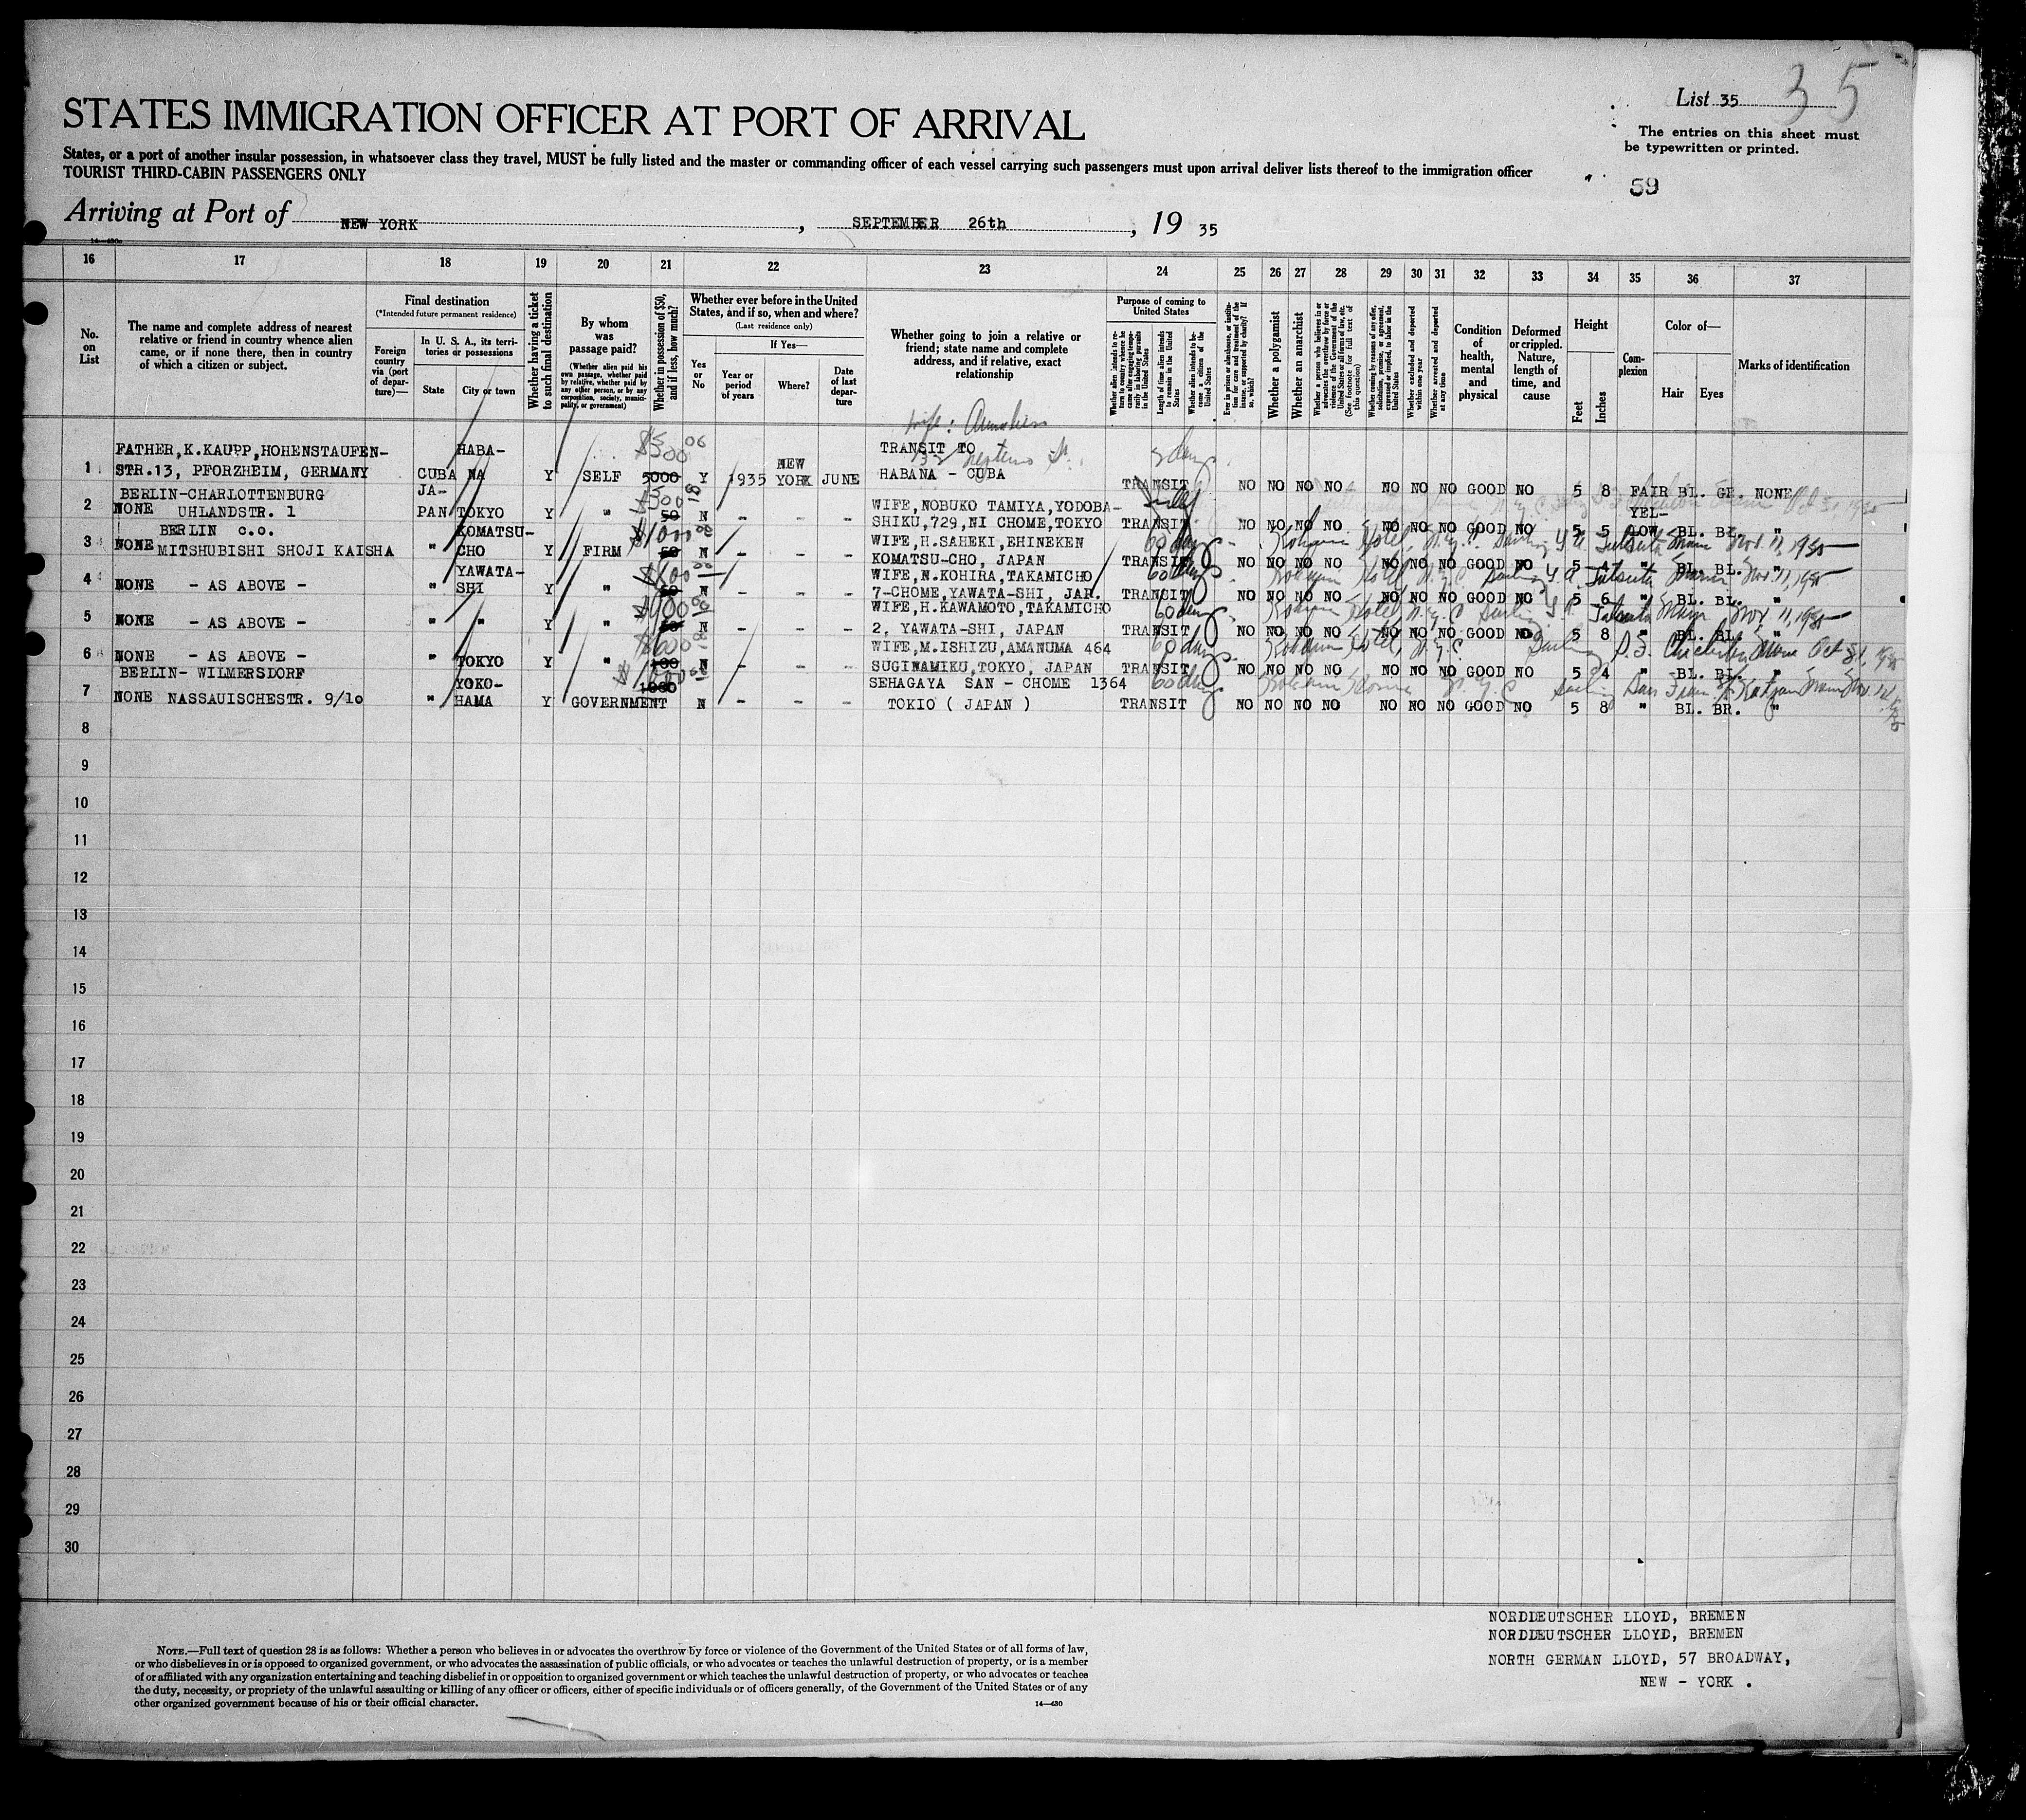 List 35
35
STATES IMMIGRATION OFFICER AT PORT OF ARRIVAL
The entries on this sheet must
be typewritten or printed.
States, or a port of another insular possession, in whatsoever class they travel, MUST be fully listed and the master or commanding officer of each vessel carrying such passengers must upon arrival deliver lists thereof to the immigration officer
TOURIST THIRD-CABIN PASSENGERS ONLY
59
Arriving at Port of NEW YORK, SEPTEMBER 26th, 19 35
16 17 18 19 20 21 22 23 24 25 26 27 28 29 30 31 32 33 34 35 36 37
No. on List
The name and complete address of nearest
relative or friend in country whence alien
came, or if none there, then in country
of which a citizen or subject.
Final destination
(*Intended future permanent residence)
Foreign country via (port of departure)—
In U. S. A., its territories or possessions
State
City or town
Whether having a ticket to such final destination
By whom was passage paid?
(Whether alien paid his own passage, whether paid by relative, whether paid by any other person, or by any corporation, society, municipality, or government)
Whether in possession of $50, and if less, how much?
Whether ever before in the United
States, and if so, when and where?
(Last residence only)
Yes or No
If Yes—
Year or period of years
Where?
Date of last departure
Whether going to join a relative or
friend; state name and complete
address, and if relative, exact
relationship
Purpose of coming to
United States
Whether alien intends to return to country whence he came after engaging temporarily in laboring pursuits in the United States
Length of time alien intends to remain in the United States
Whether alien intends to become a citizen of the United States
Ever in prison or almshouse, or institution for care and treatment of the insane, or supported by charity? If so, which?
Whether a polygamist
Whether an anarchist
Whether a person who believes in or advocates the overthrow by force or violence of the Government of the United States or all forms of law, etc. (See footnote for full text of this question)
Whether coming by reason of any offer, solicitation, promise, or agreement, expressed or implied, to labor in the United States
Whether excluded and deported within one year
Whether arrested and deported at any time
Condition of health, mental and physical
Deformed or crippled. Nature, length of time, and cause
Height
Feet
Inches
Complexion
Color of—
Hair
Eyes
Marks of identification
1 FATHER,K.KAUPP,HOHENSTAUFEN-
STR.13, PFORZHEIM, GERMANY CUBA HABA-
NA Y SELF 5000 Y 1935 NEW YORK JUNE TRANSIT TO
HABANA - CUBA TRANSIT NO NO NO NO NO NO NO GOOD NO 5 8 FAIR BL. GR. NONE
2 BERLIN-CHARLOTTENBURG
NONE UHLANDSTR. 1 JA-
PAN TOKYO Y " 50 N - - - WIFE,NOBUKO TAMIYA,YODOBA-
SHIKU,729,NI CHOME,TOKYO TRANSIT NO NO NO NO NO NO NO GOOD NO 5 5 YEL-
LOW BL. BL. "
3 BERLIN c.o.
NONE MITSHUBISHI SHOJI KAISHA " KOMATSU-
CHO Y FIRM 50 N - - - WIFE,H.SAHEKI,EHINEKEN
KOMATSU-CHO, JAPAN TRANSIT 60 days NO NO NO NO NO NO NO GOOD NO 5 4 " BL. BL. "
Nov. 11, 1935
4 NONE - AS ABOVE - " YAWATA-
SHI Y " 50 N - - - WIFE,N.KOHIRA,TAKAMICHO
7-CHOME,YAWATA-SHI, JAP. TRANSIT 60 days NO NO NO NO NO NO NO GOOD NO 5 6 " BL. BL. "
Hotel, N.Y.C. Nov. 11, 1935
5 NONE - AS ABOVE - " " Y " 50 N - - - WIFE,H.KAWAMOTO,TAKAMICHO
2, YAWATA-SHI, JAPAN TRANSIT 60 days NO NO NO NO NO NO NO GOOD NO 5 8 " BL. BL. "
Hotel, N.Y.C. Nov 11, 1935
6 NONE - AS ABOVE - " TOKYO Y " 100 N - - - WIFE,M.ISHIZU,AMANUMA 464
SUGINAMIKU,TOKYO, JAPAN TRANSIT 60 days NO NO NO NO NO NO NO GOOD NO 5 4 " BL. BL. "
Hotel, N.Y.C.
7 BERLIN- WILMERSDORF
NONE NASSAUISCHESTR. 9/10 " YOKO-
HAMA Y GOVERNMENT 1000 N - - - SEHAGAYA SAN - CHOME 1364
TOKIO ( JAPAN ) TRANSIT 60 days NO NO NO NO NO NO NO GOOD NO 5 8 " BL. BR. "
8
9
10
11
12
13
14
15
16
17
18
19
20
21
22
23
24
25
26
27
28
29
30
NORDDEUTSCHER LLOYD, BREMEN
NORDDEUTSCHER LLOYD, BREMEN
NORTH GERMAN LLOYD, 57 BROADWAY,
NEW - YORK .
NOTE.—Full text of question 28 is as follows: Whether a person who believes in or advocates the overthrow by force or violence of the Government of the United States or of all forms of law,
or who disbelieves in or is opposed to organized government, or who advocates the assassination of public officials, or who advocates or teaches the unlawful destruction of property, or is a member
of or affiliated with any organization entertaining and teaching disbelief in or opposition to organized government or which teaches the unlawful destruction of property, or who advocates or teaches
the duty, necessity, or propriety of the unlawful assaulting or killing of any officer or officers, either of specific individuals or of officers generally, of the Government of the United States or of any
other organized government because of his or their official character.
14—430